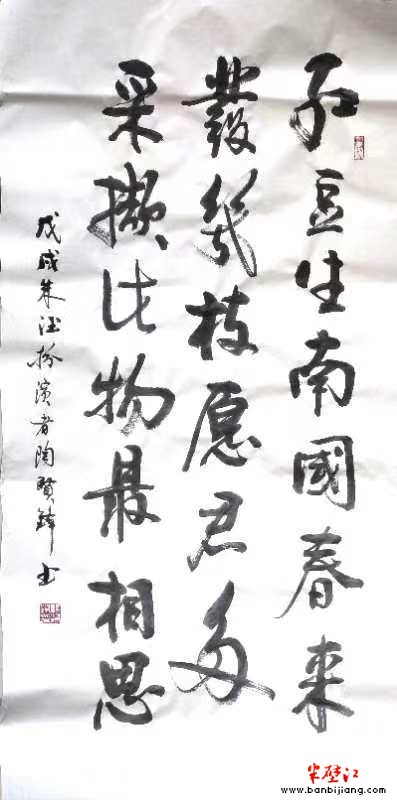 红豆生南國春来
發幾枝愿君多
采擷此物最相思
戊戌朱德扮演者陶贤锋书
半壁江
www.banbijiang.com